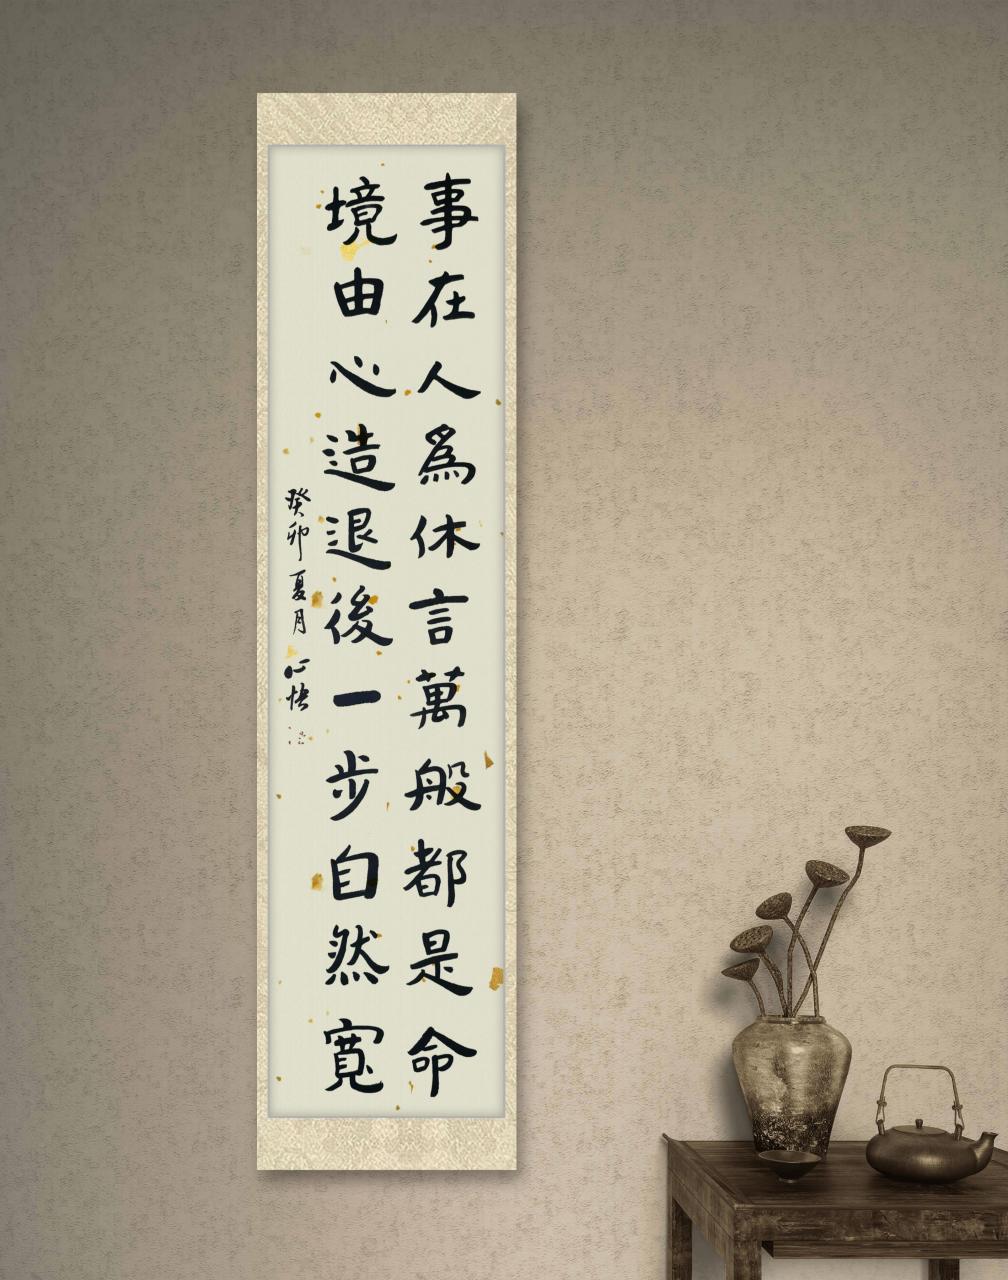 事在人為休言萬般都是命
境由心造退後一步自然寬
癸卯夏月心悟